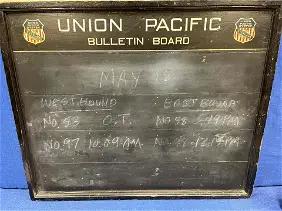 UNION PACIFIC
BULLETIN BOARD
MAY
WEST BOUND EAST BOUND
NO. 53 O.T. NO. 58
NO. 97 10:09 AM